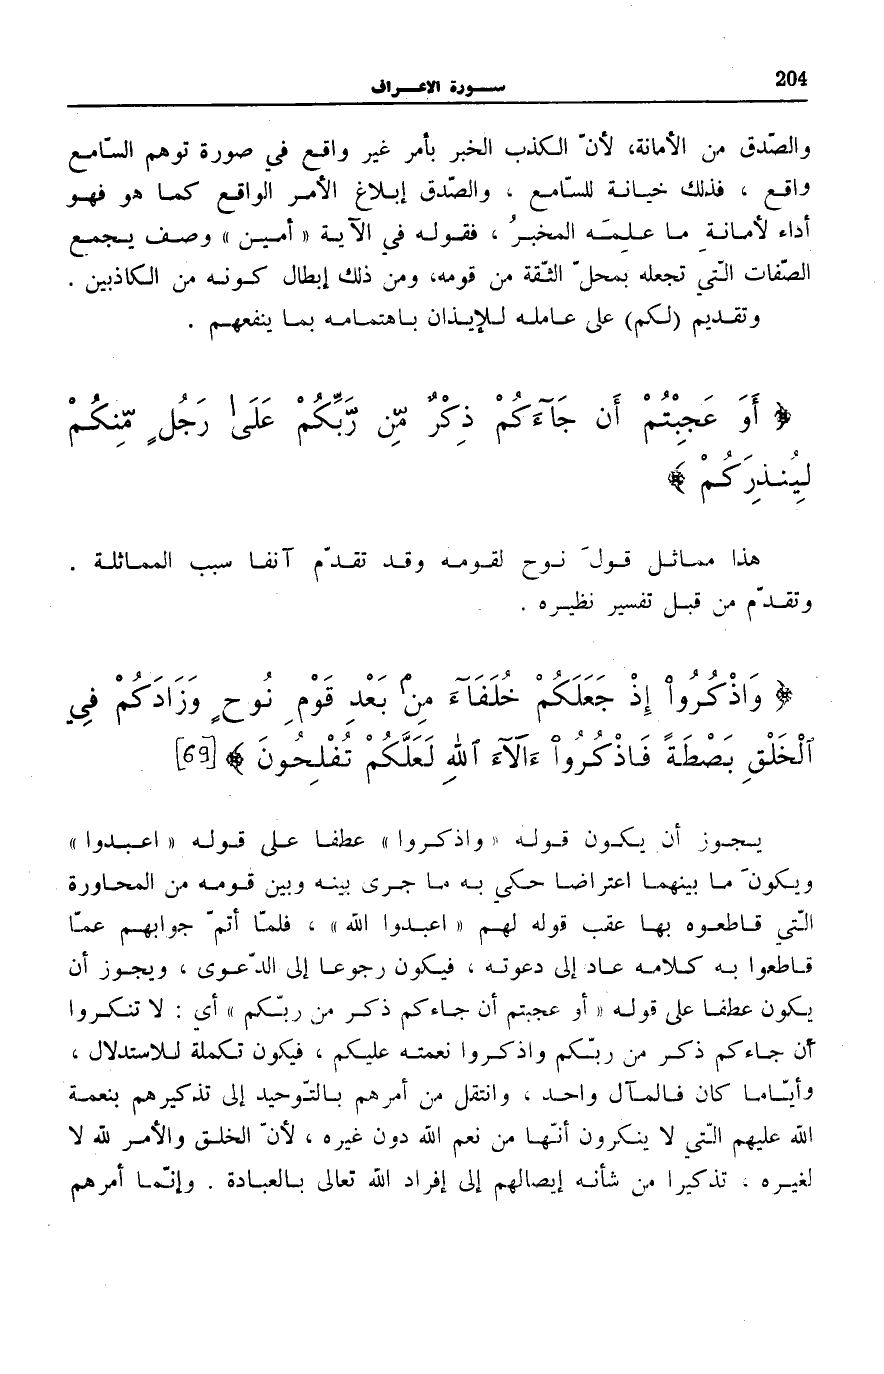 204
سورة الاعراف
والصّدق من الأمانة، لأنّ الكذب الخبر بأمر غير واقع في صورة توهم السّامع
واقع ، فذلك خيانة للسّامع ، والصّدق إبلاغ الأمر الواقع كما هو فهو
أداء لأمانةِ ما علمَه المخبرُ ، فقوله في الآية « أمين » وصف يجمع
الصّفات التّي تجعله بمحلّ الثّقة من قومه، ومن ذلك إبطال كونه من الكاذبين .
وتقديم (لكم) على عامله للإيذان باهتمامه بما ينفعهم .
﴿ أَوَ عَجِبْتُمْ أَن جَآءَكُمْ ذِكْرٌ مِّن رَّبِّكُمْ عَلَىٰ رَجُلٍ مِّنكُمْ
لِيُنذِرَكُمْ ﴾
هذا مماثل قولَ نوح لقومه وقد تقدّم آنفا سبب المماثلة .
وتقدّم من قبل تفسير نظيره .
﴿ وَاذْكُرُواْ إِذْ جَعَلَكُمْ خُلَفَآءَ مِنۢ بَعْدِ قَوْمِ نُوحٍ وَزَادَكُمْ فِي
ٱلْخَلْقِ بَصْطَةً فَاذْكُرُواْ ءَالَآءَ ٱللَّهِ لَعَلَّكُمْ تُفْلِحُونَ ﴾ [69]
يجوز أن يكون قوله « واذكروا » عطفا على قوله « اعبدوا »
ويكونَ ما بينهما اعتراضا حكي به ما جرى بينه وبين قومه من المحاورة
التّي قاطعوه بها عقب قوله لهم « اعبدوا الله » ، فلمّا أتمّ جوابهم عمّا
قاطعوا به كلامه عاد إلى دعوته ، فيكون رجوعا إلى الدّعوى ، ويجوز أن
يكون عطفا على قوله « أو عجبتم أن جاءكم ذكر من ربّكم » أي : لا تنكروا
أن جاءكم ذكر من ربّكم واذكروا نعمته عليكم ، فيكون تكملة للاستدلال ،
وأيّاما كان فالمآل واحد ، وانتقل من أمرهم بالتّوحيد إلى تذكيرهم بنعمة
الله عليهم التّي لا ينكرون أنّها من نعم الله دون غيره ، لأنّ الخلق والأمر لله لا
لغيره . تذكيرا من شأنه إيصالهم إلى إفراد الله تعالى بالعبادة . وإنّما أمرهم